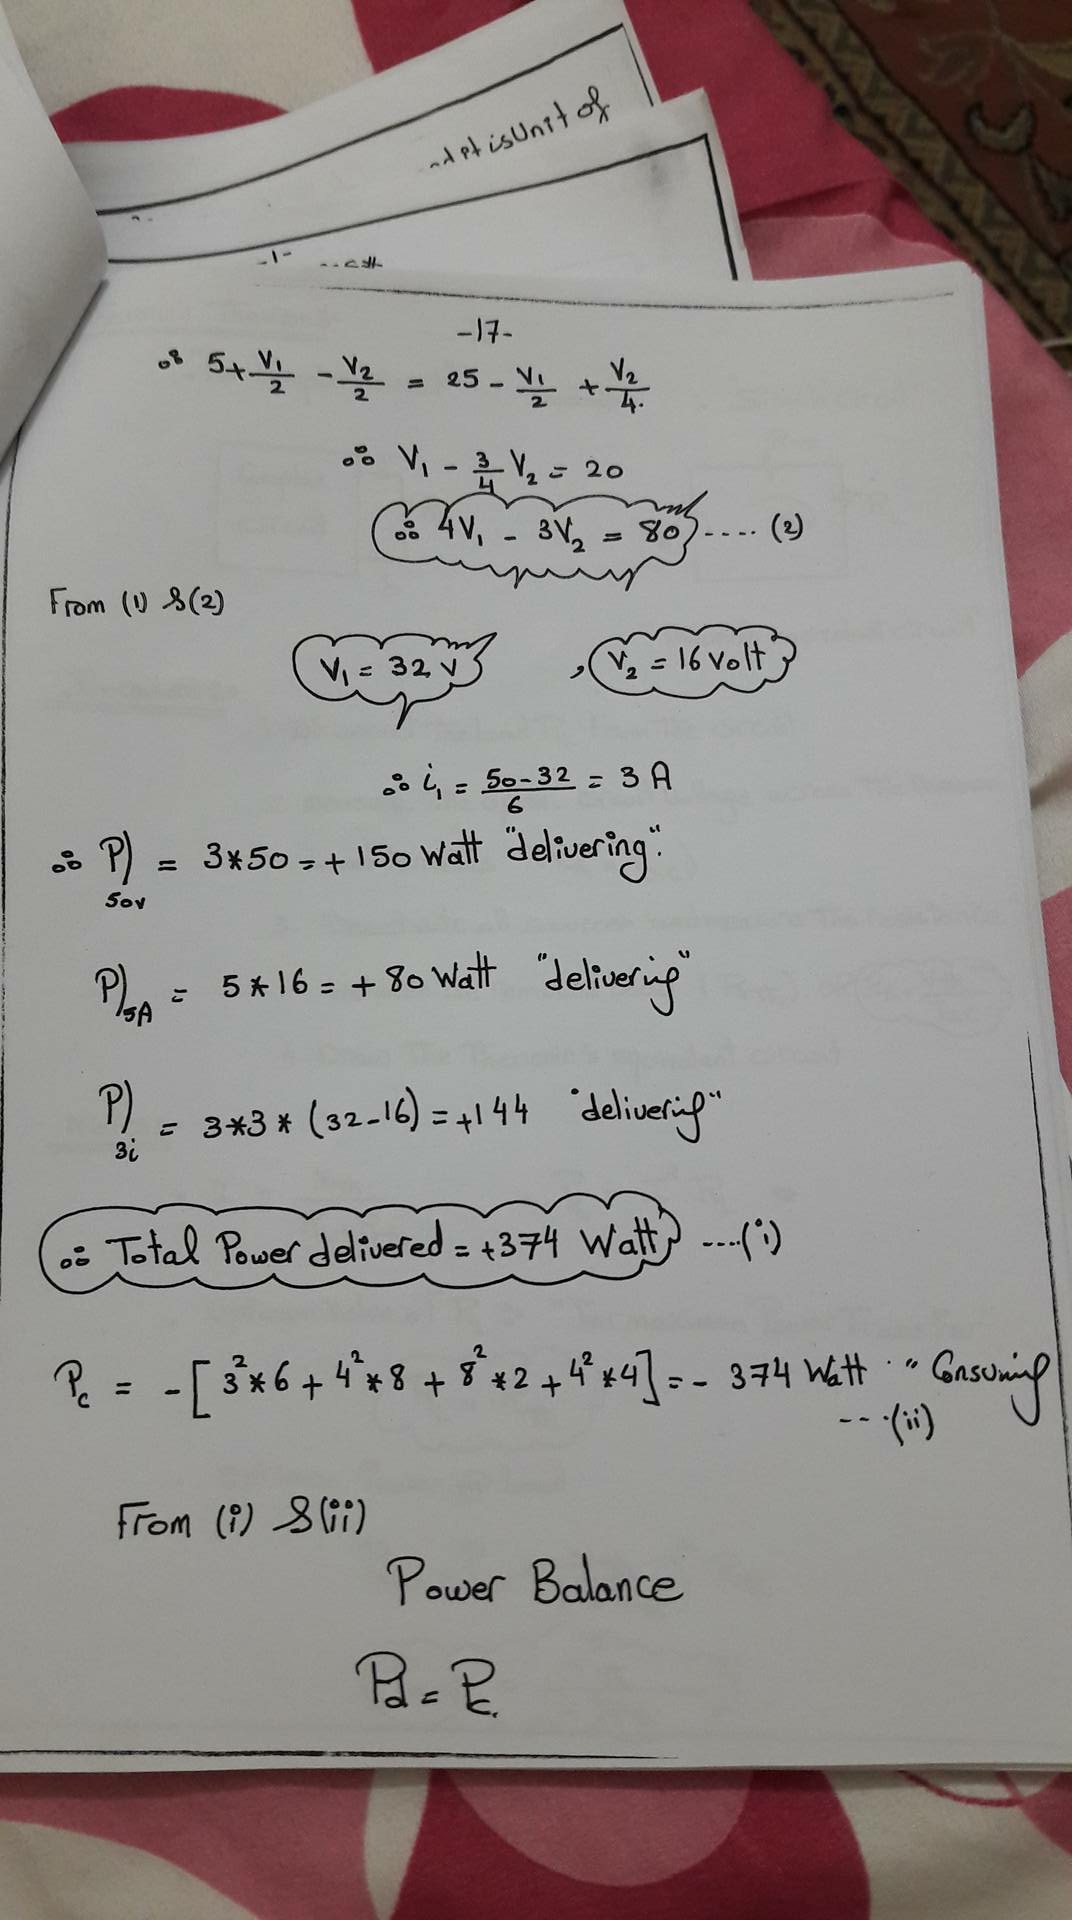 is Unit of
-17-
∴ 5 + V₁/2 - V₂/2 = 25 - V₁/2 + V₂/4.
∴ V₁ - 3/4 V₂ = 20
∴ 4V₁ - 3V₂ = 80 .... (2)
From (1) & (2)
V₁ = 32 V , V₂ = 16 Volt
∴ i₁ = (50-32)/6 = 3 A
∴ P)50V = 3*50 = +150 Watt "delivering".
P)5A = 5*16 = +80 Watt "delivering"
P)3i = 3*3*(32-16) = +144 "delivering"
∴ Total Power delivered = +374 Watt ....(i)
Pc = -[3²*6 + 4²*8 + 8²*2 + 4²*4] = - 374 Watt . "Consuming
....(ii)
From (i) & (ii)
Power Balance
Pd = Pc.